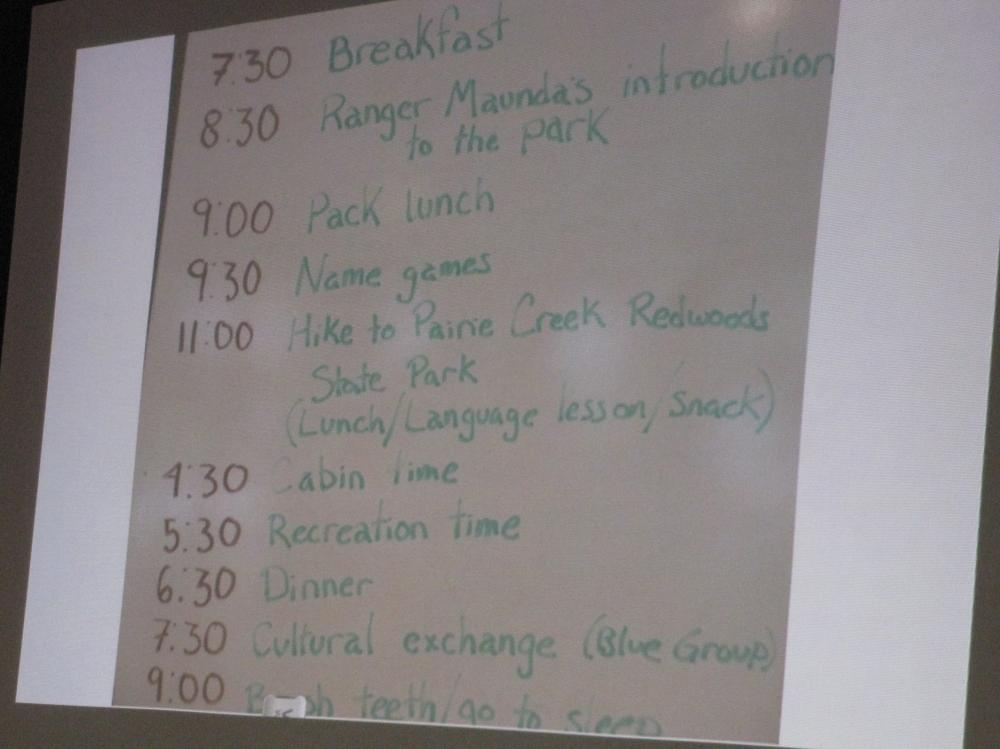 7:30 Breakfast
8:30 Ranger Maunda's introduction
to the park
9:00 Pack lunch
9:30 Name games
11:00 Hike to Pairie Creek Redwoods
State Park
(Lunch/Language lesson/Snack)
4:30 Cabin time
5:30 Recreation time
6:30 Dinner
7:30 Cultural exchange (Blue Group)
9:00 Brush teeth/go to sleep